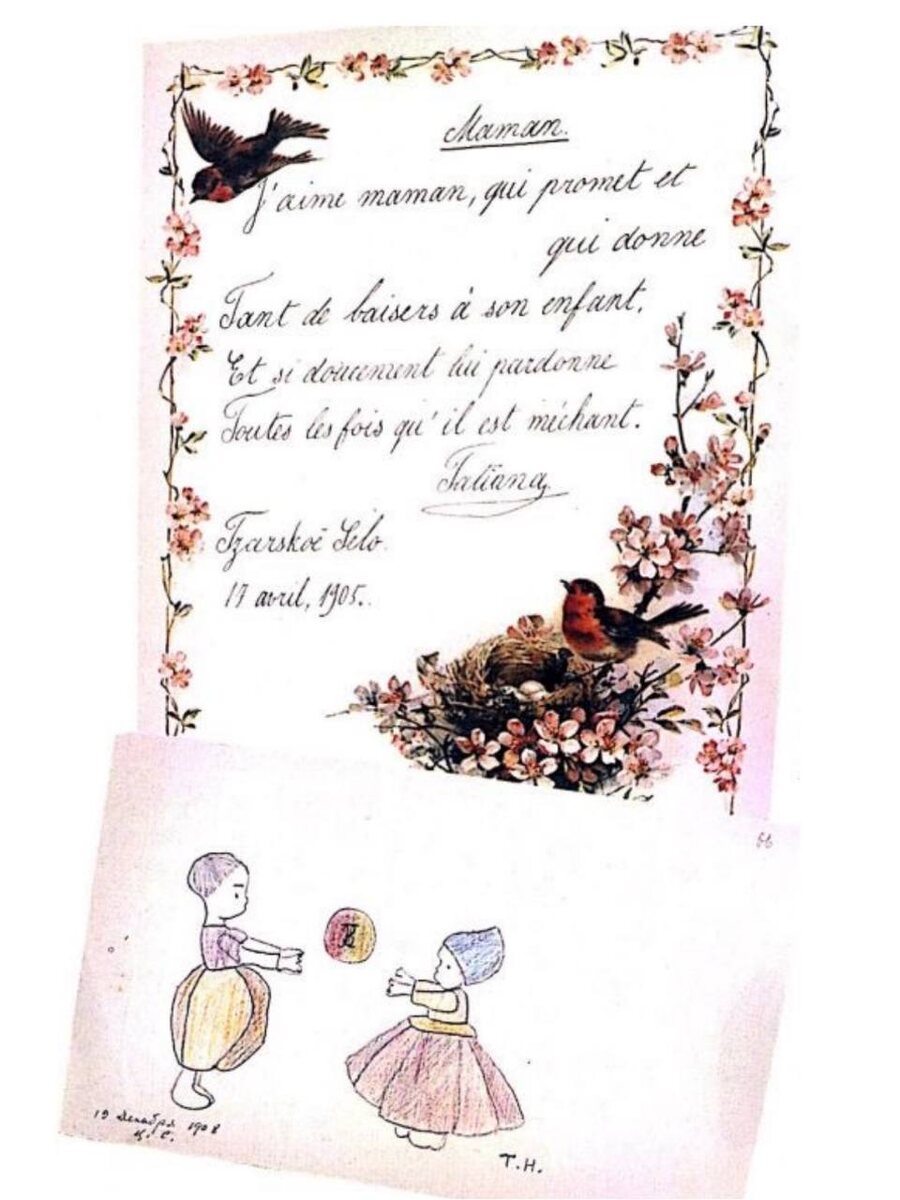 Maman.
J'aime maman, qui promet et
qui donne
Tant de baisers à son enfant,
Et si doucement lui pardonne
Toutes les fois qu'il est méchant.
Tatïana
Tzarskoë Sélo.
17 avril, 1905.
66
19 декабря 1908
Ц. С.
Т.Н.